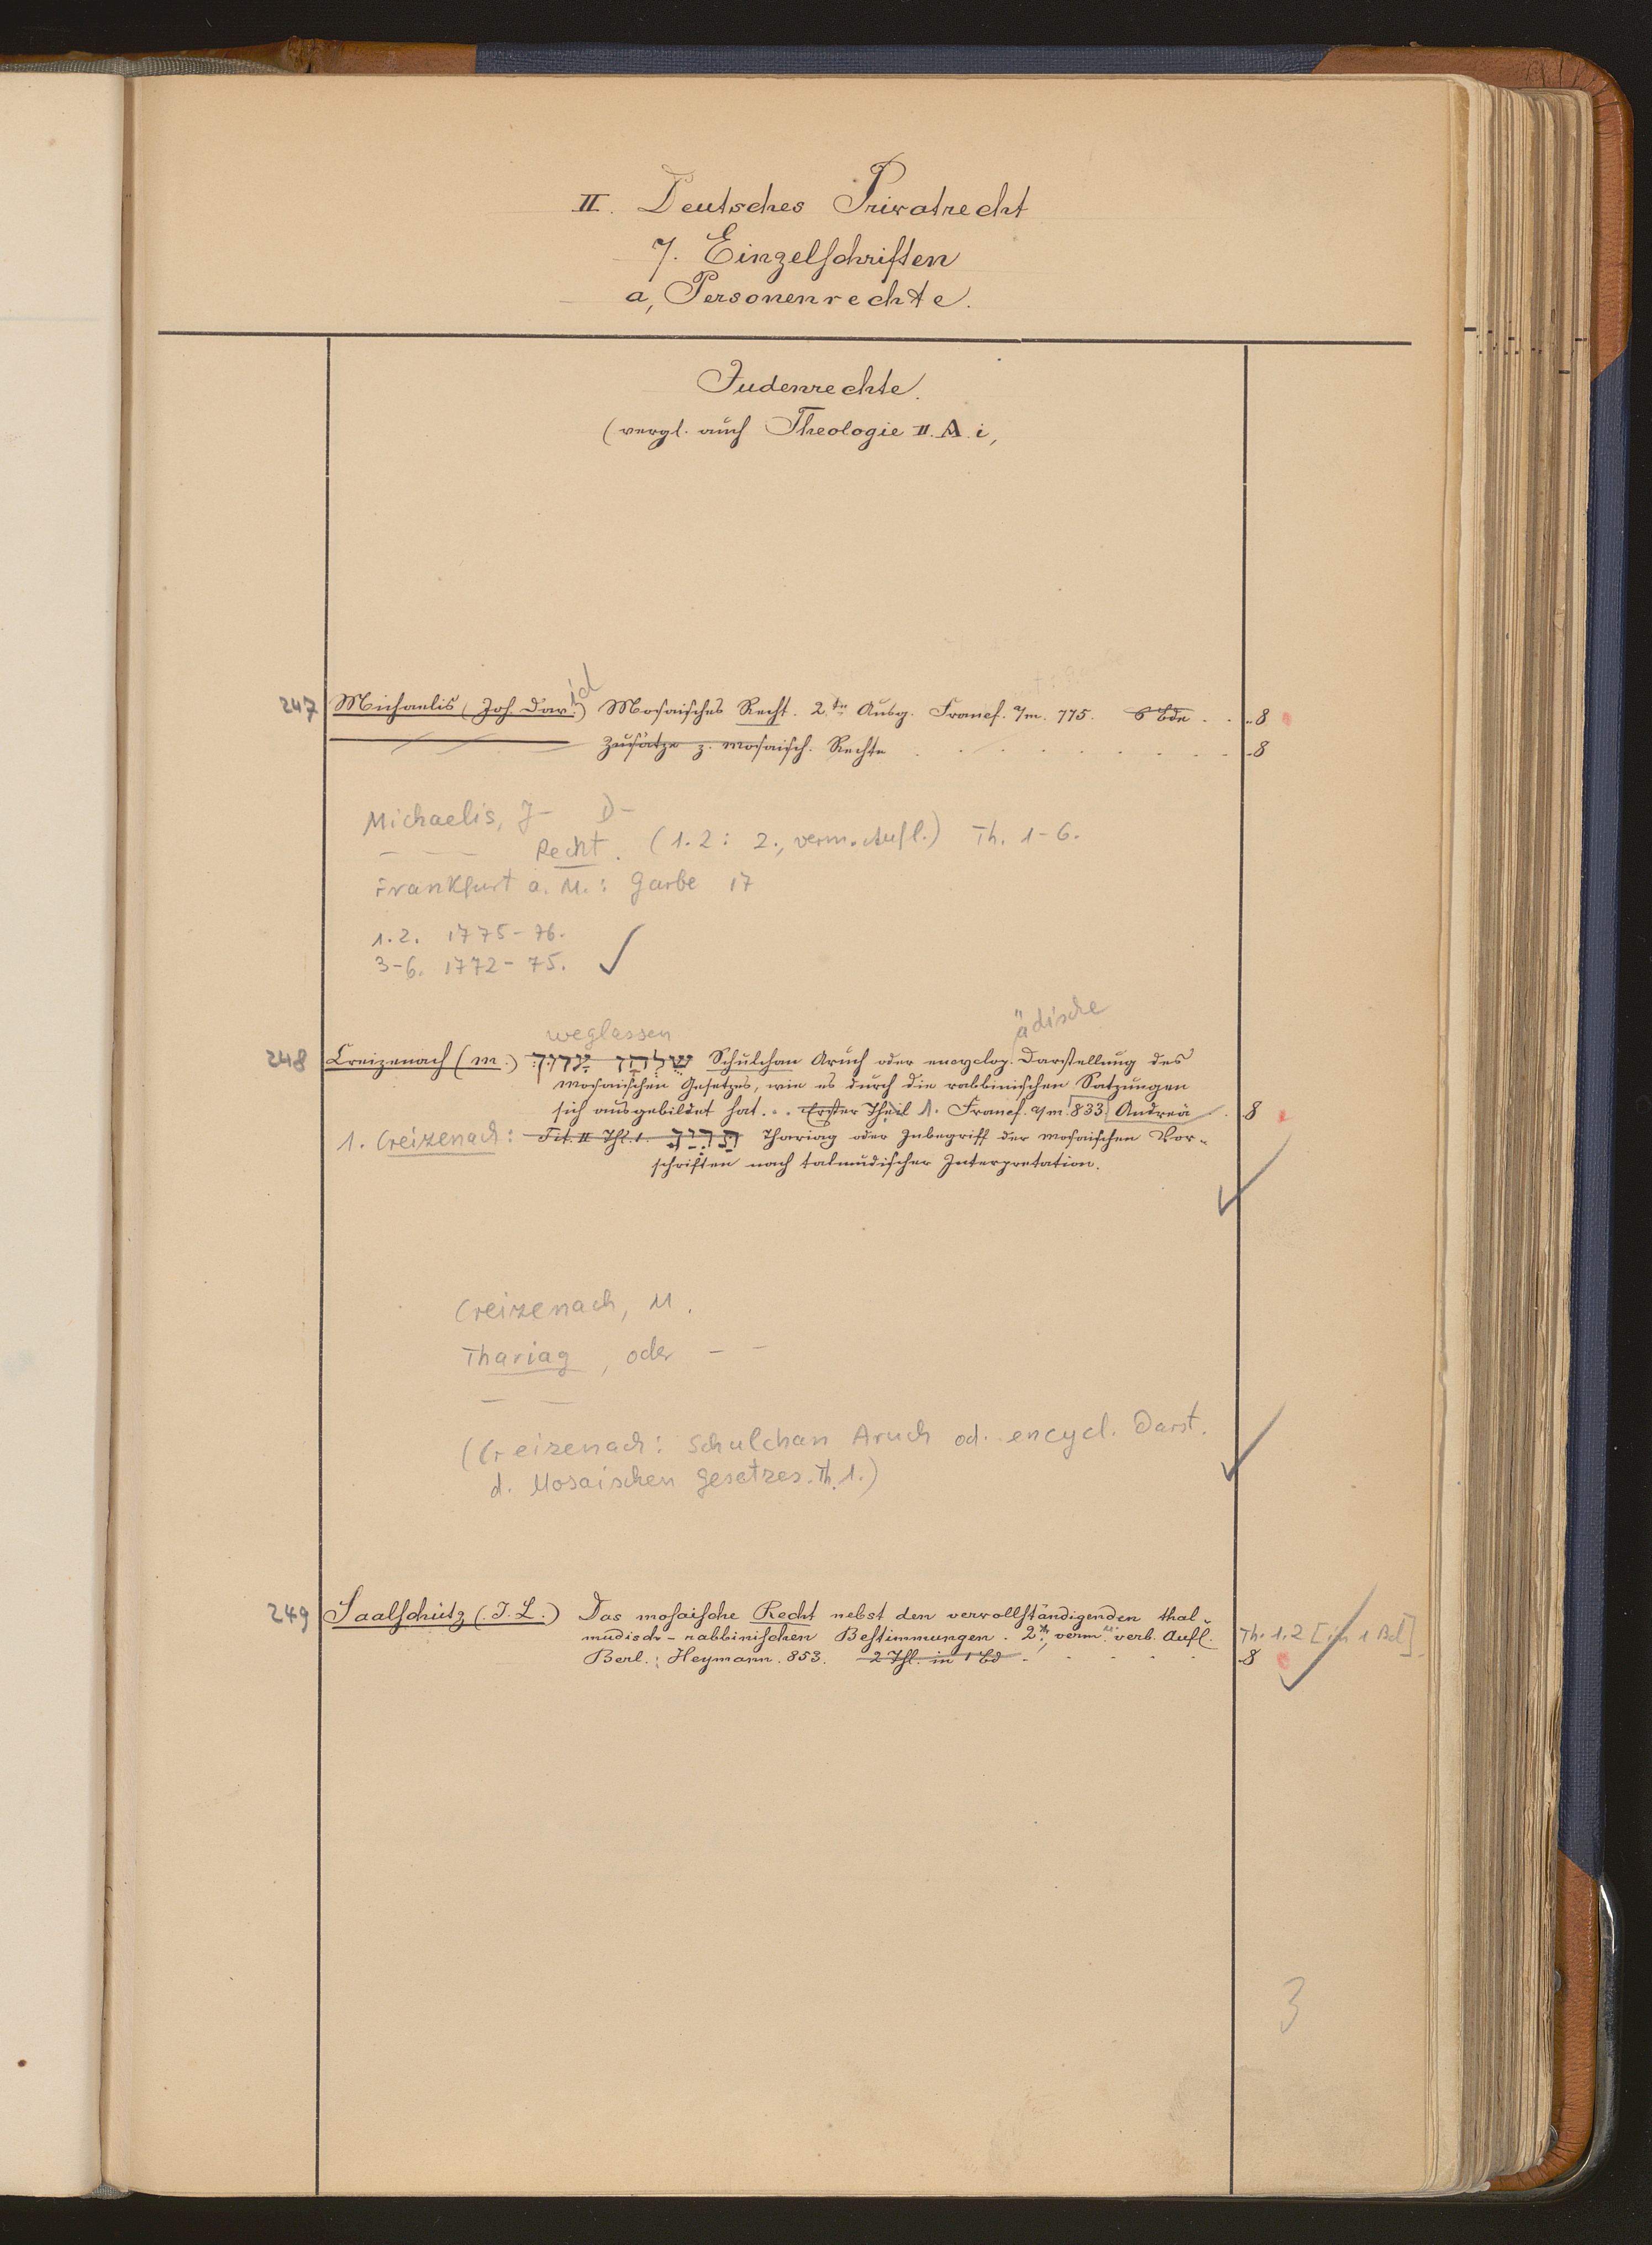 II. Deutsches Privatrecht
7. Einzelschriften
a, Personenrechte.
Judenrechte.
(vergl. auch Theologie II. A. i,
247 Michaelis (Joh. David) Mosaisches Recht. 2te Ausg. Francf. a/m. 775. 6 Bde . . 8
Zusätze z. mosaisch. Rechte . . . . . . . . . 8
Michaelis, J- D-
— — Recht. (1.2: 2., verm. Aufl.) Th. 1-6.
Frankfurt a. M.: Garbe 17
1.2. 1775-76.
3-6. 1772-75. ✓
weglassen
ädische
248 Creizenach (M.) שֻׁלְחָן עָרוּךְ Schulchan Aruch oder encyclop. Darstellung des
mosaischen Gesetzes, wie es durch die rabbinischen Satzungen
sich ausgebildet hat. . . Erster Theil 1. Francf. a/m. 833. Andreä . . 8
1. Creizenach: Tit. II Thl. 1. תַרְיַג Thariag oder Inbegriff der mosaischen Vor-
schriften nach talmudischer Interpretation. ✓
Creizenach, M.
Thariag, oder – –
— —
(Creizenach: Schulchan Aruch od. encycl. Darst.
d. Mosaischen Gesetzes. Th. 1.) ✓
249 Saalschütz (J. L.) Das mosaische Recht nebst den vervollständigenden thal-
mudisch-rabbinischen Bestimmungen. 2te, verm. u. verb. Aufl. Th. 1.2 [in 1 Bd]
Berl.: Heymann. 853. 2 Thl. in 1 Bd . . . . . 8 ✓
3